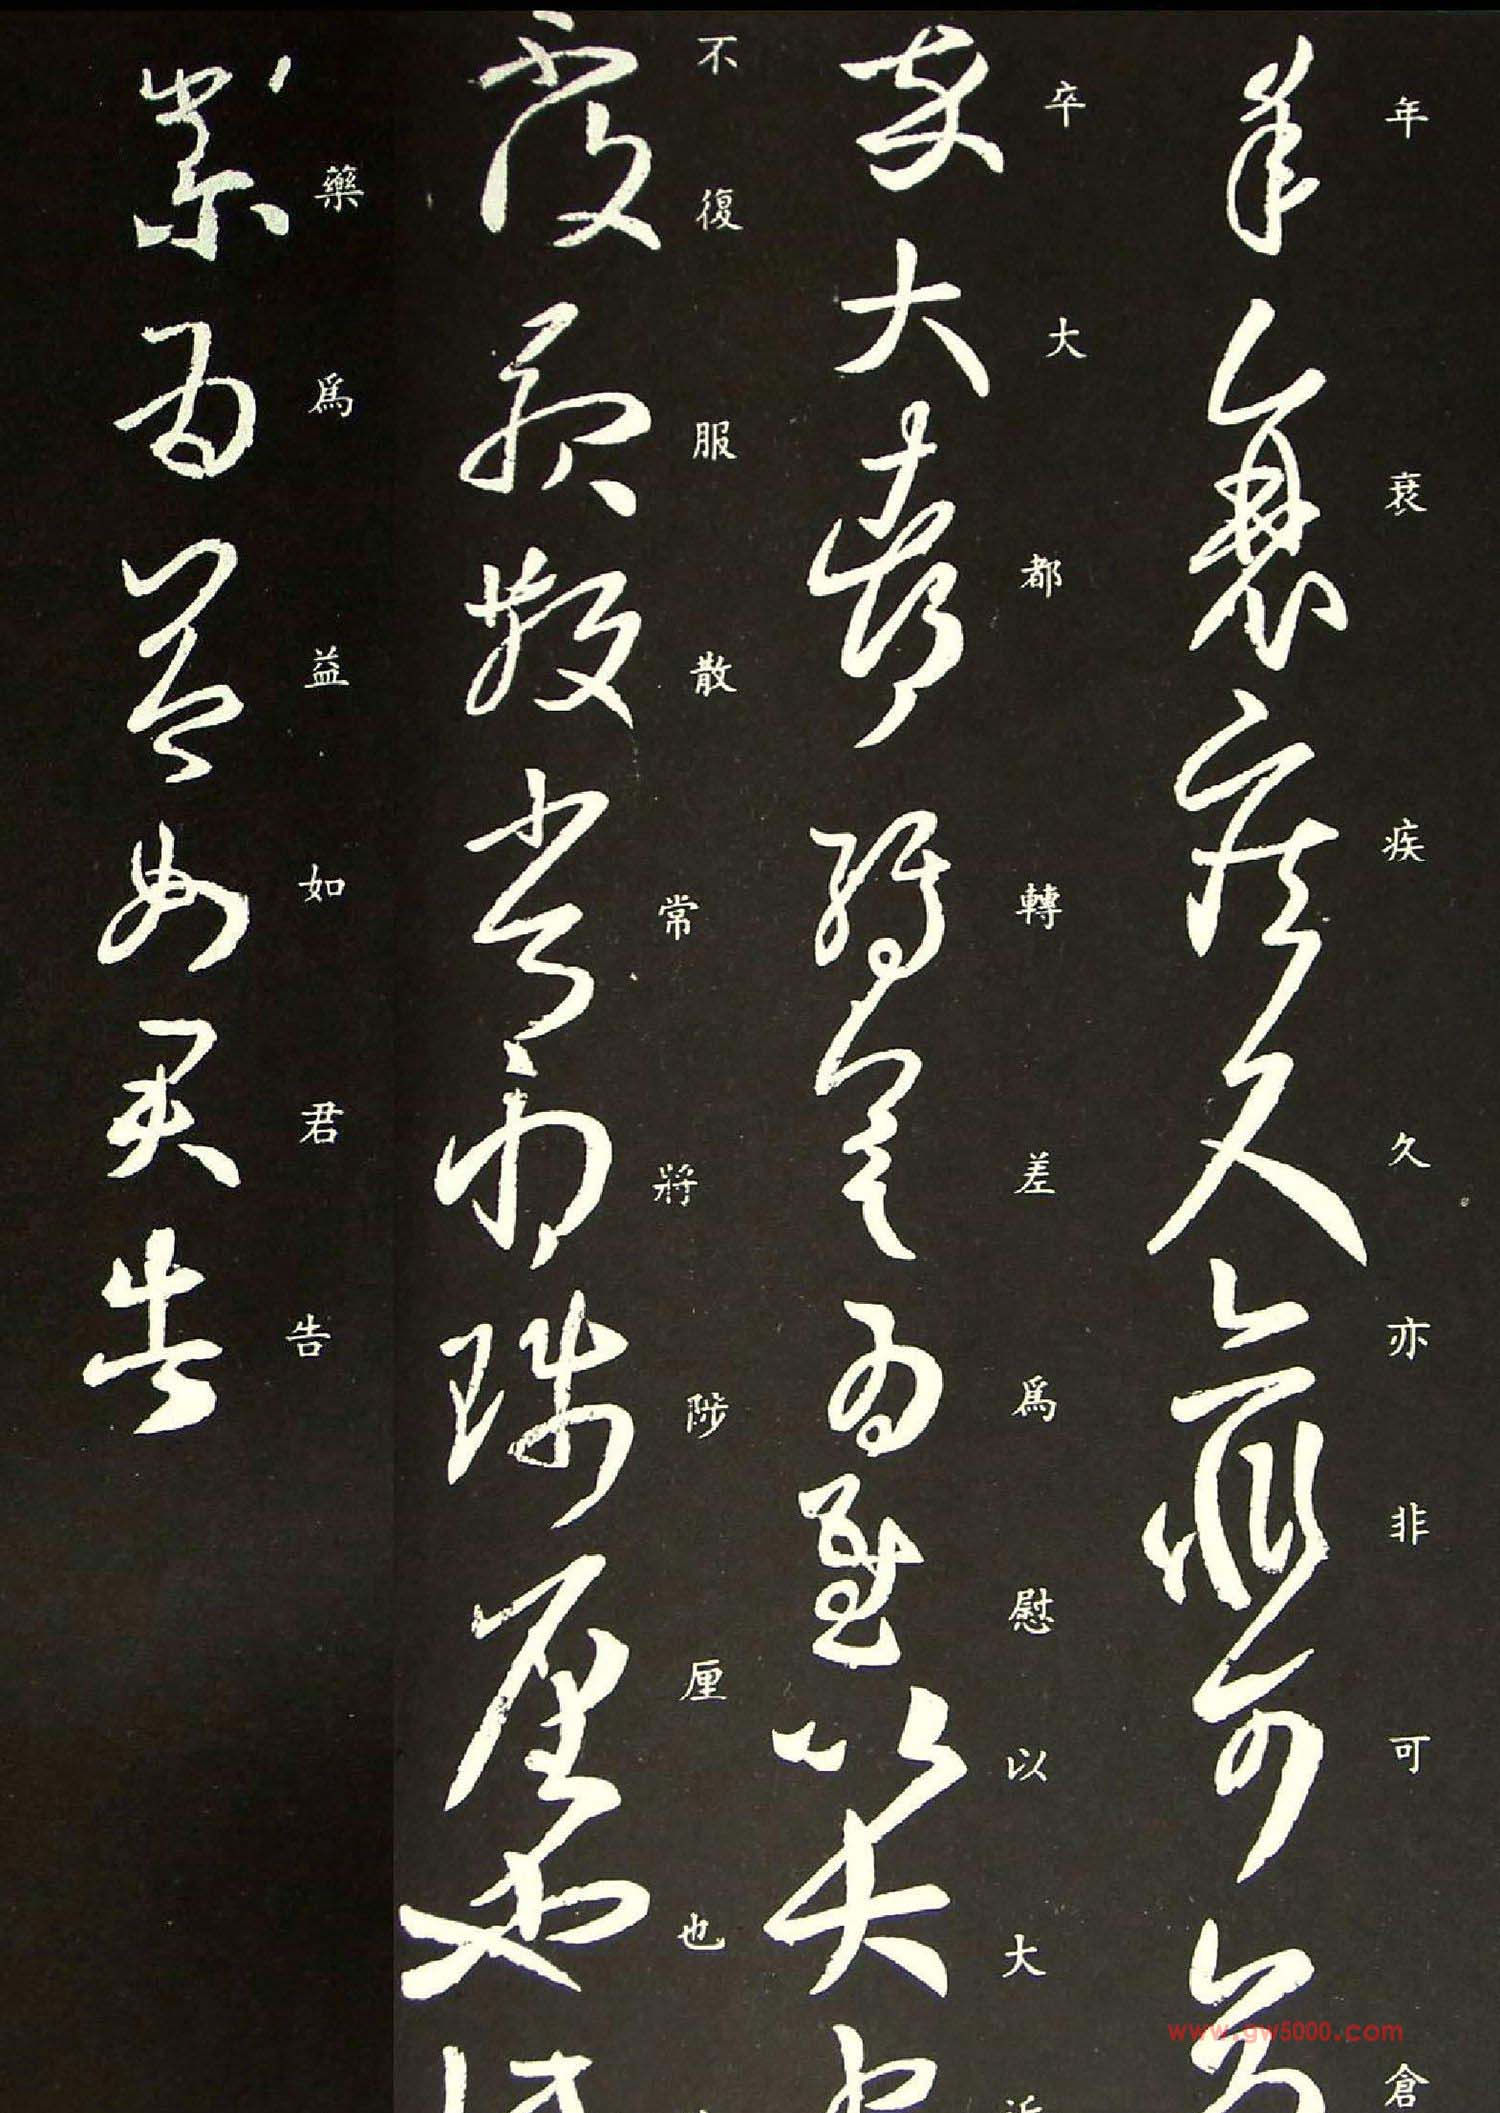 年衰疾久亦非可倉
卒大都轉差為慰以大近
不復服散常將陟厘也
藥為益如君告
www.gw5000.com